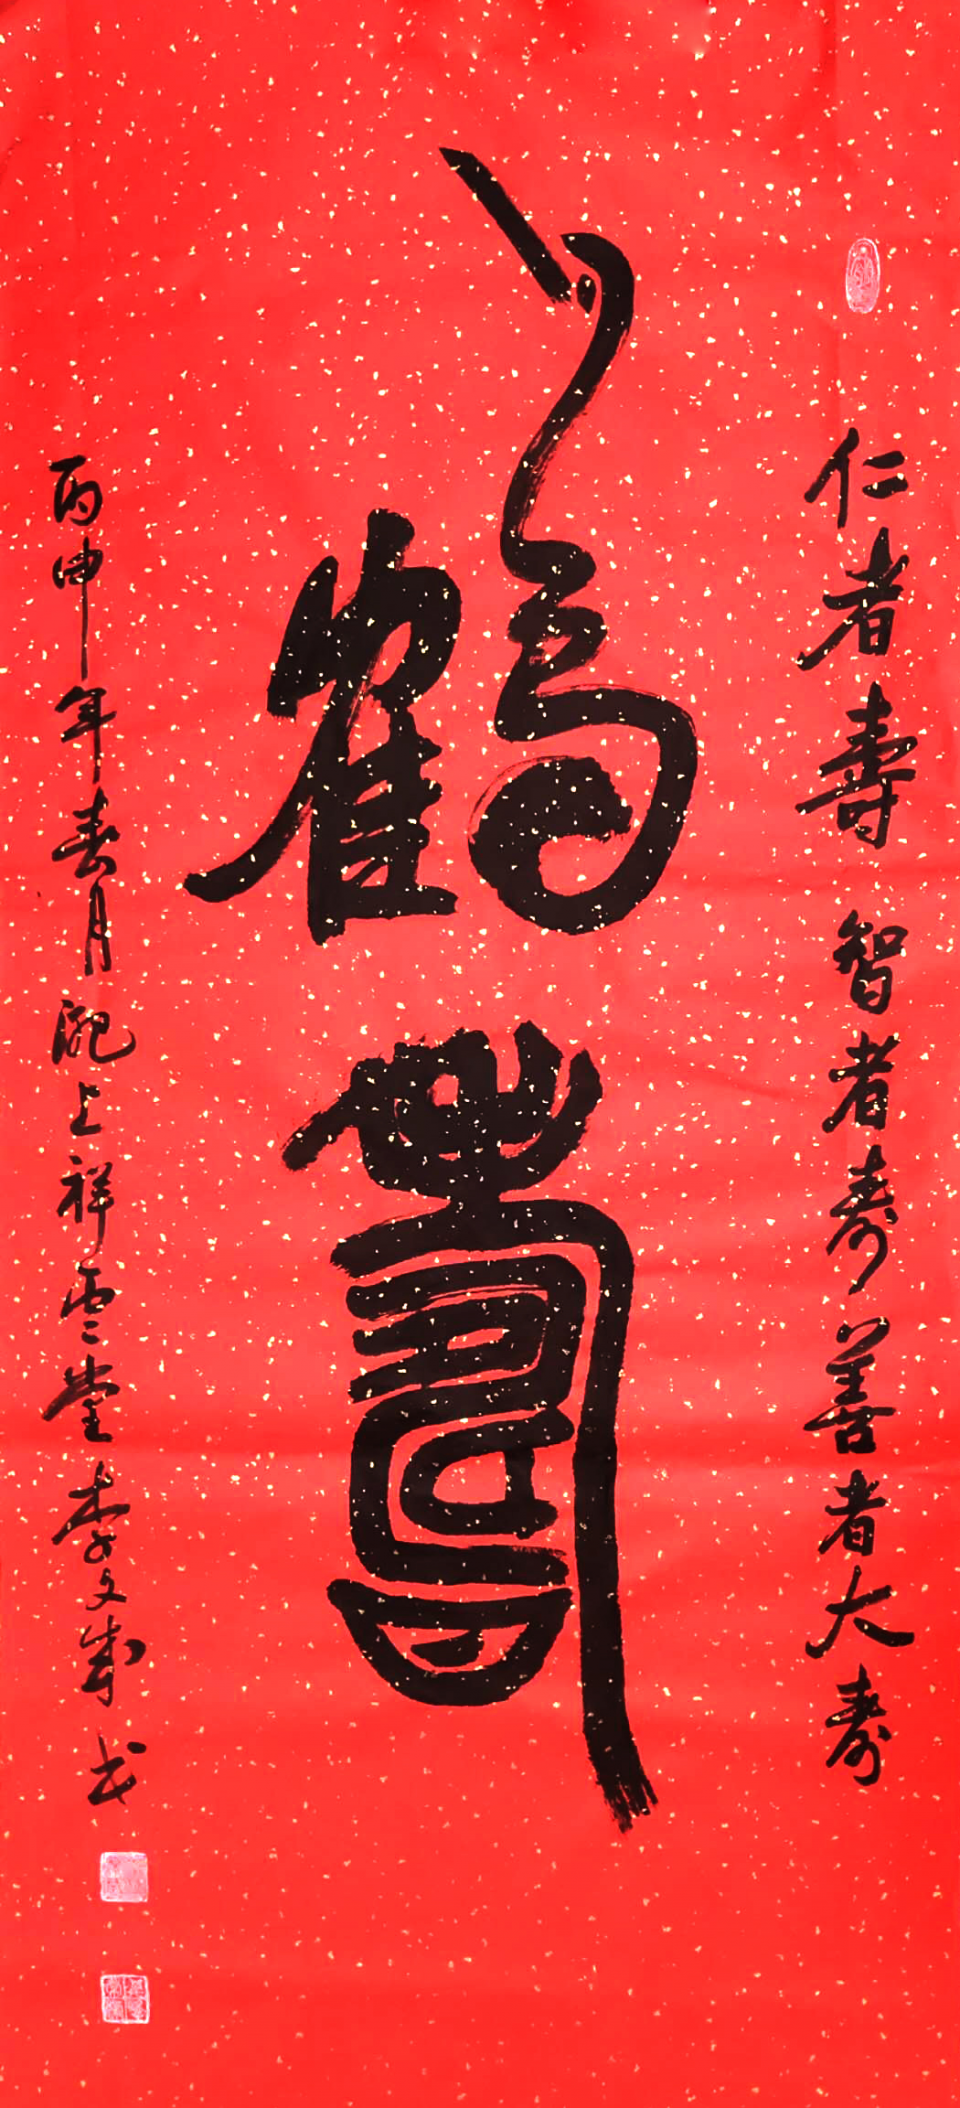 仁者壽 智者寿 善者大寿
鶴壽
丙申年春月 陇上祥云堂 李文成书